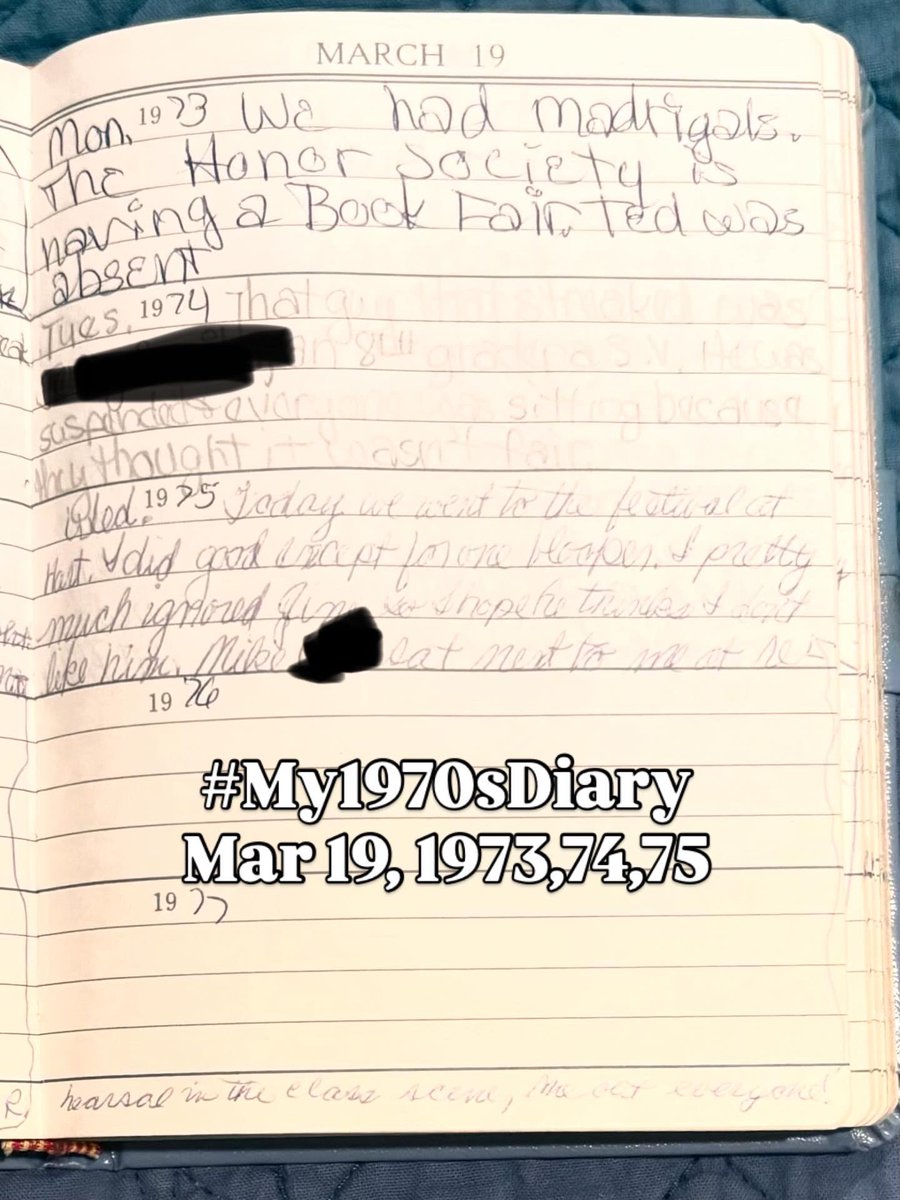 MARCH 19
Mon. 1973 We had madrigals.
The Honor Society is
having a Book Fair. Ted was
absent
Tues. 1974 That guy that was
8th grade a S.V. He was
suspended & everyone was sitting because
they thought it wasn't fair.
Wed. 1975 Today we went to the festival at
Hart. I did good except for one blooper. I pretty
much ignored Jim so I hope he thinks I don't
like him. Mike sat next to me at
1976
#My1970sDiary
Mar 19, 1973,74,75
1977
R, hearsal in the class scene, everyone!